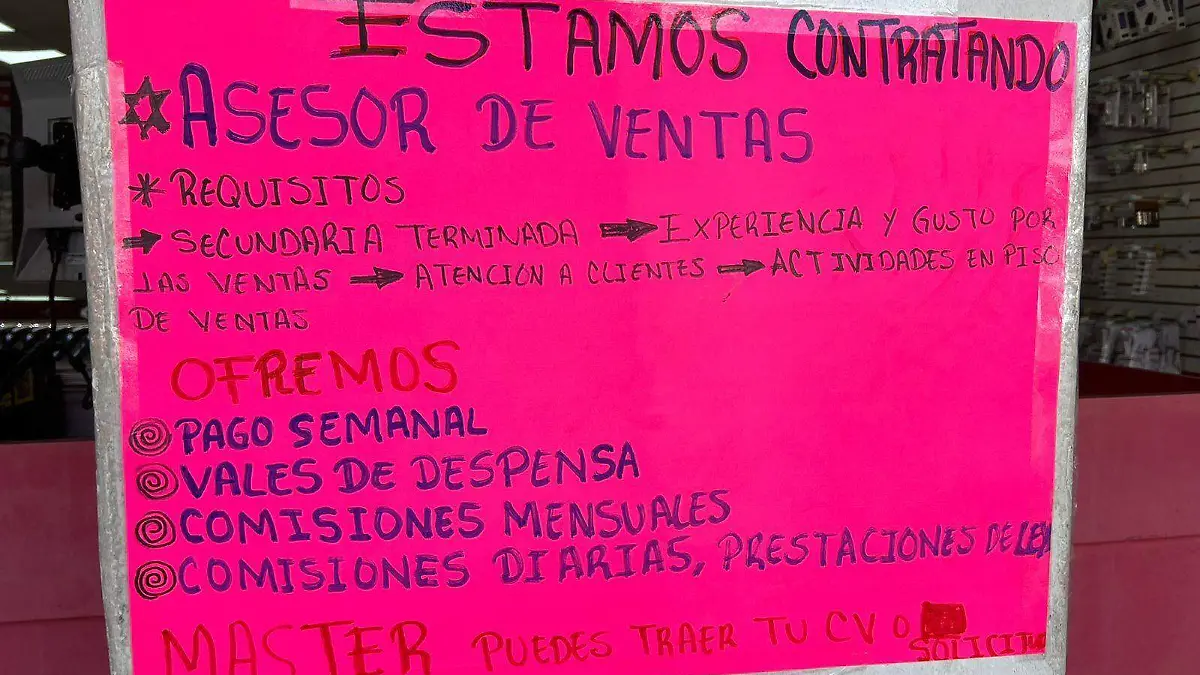 ESTAMOS CONTRATANDO
ASESOR DE VENTAS
* REQUISITOS
→ SECUNDARIA TERMINADA → EXPERIENCIA Y GUSTO POR
LAS VENTAS → ATENCION A CLIENTES → ACTIVIDADES EN PISO
DE VENTAS
OFREMOS
PAGO SEMANAL
VALES DE DESPENSA
COMISIONES MENSUALES
COMISIONES DIARIAS, PRESTACIONES DE LEY
MASTER PUEDES TRAER TU CV O
SOLICITUD